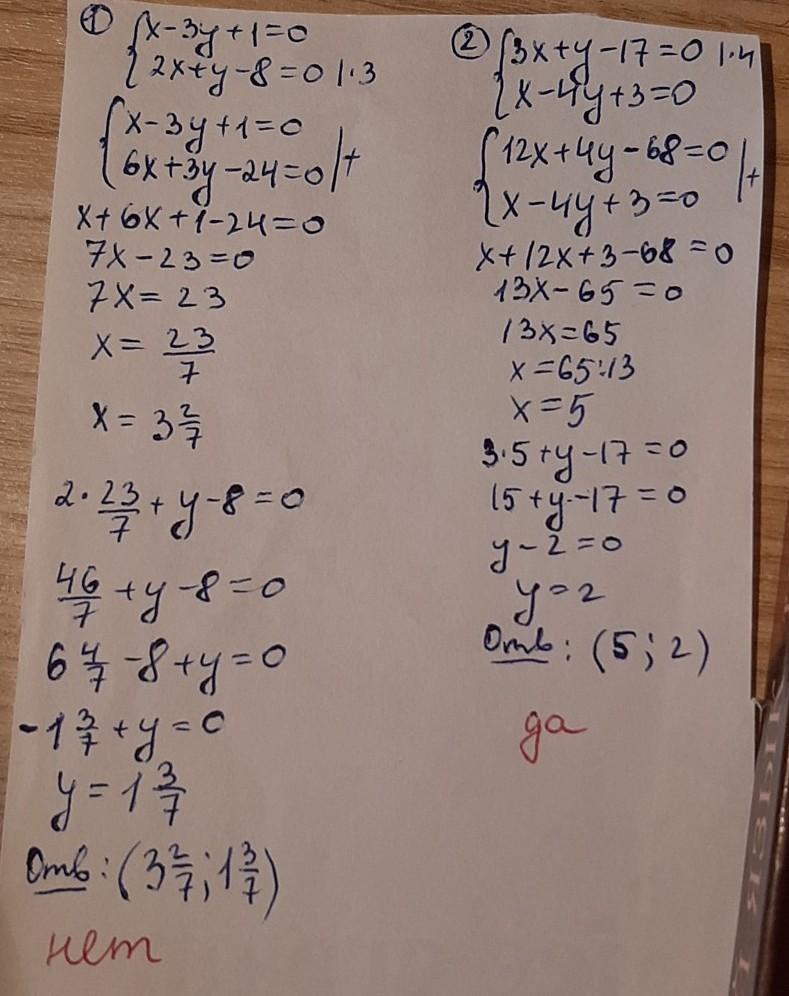 ① {x-3y+1=0
{2x+y-8=0 |·3
{x-3y+1=0
{6x+3y-24=0 |+
x+6x+1-24=0
7x-23=0
7x=23
x= 23/7
x= 3 2/7
2·23/7+y-8=0
46/7+y-8=0
6 4/7-8+y=0
-1 3/7+y=0
y=1 3/7
Отв: (3 2/7; 1 3/7)
нет
② {3x+y-17=0 |·4
{x-4y+3=0
{12x+4y-68=0
{x-4y+3=0 |+
x+12x+3-68=0
13x-65=0
13x=65
x=65:13
x=5
3·5+y-17=0
15+y-17=0
y-2=0
y=2
Отв: (5; 2)
да
ЯЗЫК